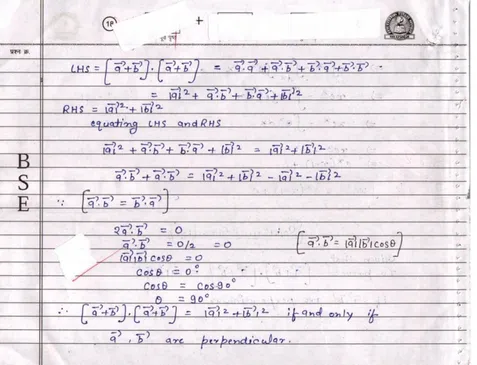 18 +
प्रश्न क्र.
LHS = [a⃗+b⃗]·[a⃗+b⃗] = a⃗·a⃗ + a⃗·b⃗ + b⃗·a⃗ + b⃗·b⃗
= |a⃗|² + a⃗·b⃗ + b⃗·a⃗ + |b⃗|²
RHS = |a⃗|² + |b⃗|²
equating LHS and RHS
|a⃗|² + a⃗·b⃗ + b⃗·a⃗ + |b⃗|² = |a⃗|² + |b⃗|²
a⃗·b⃗ + a⃗·b⃗ = |a⃗|² + |b⃗|² - |a⃗|² - |b⃗|²
∵ [a⃗·b⃗ = b⃗·a⃗]
2a⃗·b⃗ = 0
a⃗·b⃗ = 0/2 = 0 [a⃗·b⃗ = |a⃗||b⃗|cosθ]
|a⃗||b⃗|cosθ = 0
cosθ = 0°
cosθ = cos90°
θ = 90°
∴ [a⃗+b⃗]·[a⃗+b⃗] = |a⃗|² + |b⃗|² if and only if
a⃗, b⃗ are perpendicular.
B
S
E